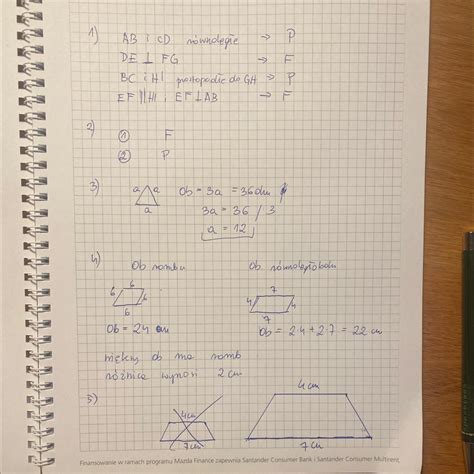 1) AB i CD równoległe → P
DE ⊥ FG → F
BC i HI prostopadłe do GH → P
EF || HI i EF ⊥ AB → F
2) ① F
② P
3) a a a Ob = 3a = 36dm
3a = 36 / 3
a = 12
4) Ob rombu Ob. równoległoboku
6 6 6 6 7 4 4 7
Ob = 24 cm Ob = 2·4 + 2·7 = 22 cm
ob ma romb
różnica wynosi 2 cm
5) 4cm 4cm
7cm 7cm
Finansowanie w ramach programu Mazda Finance zapewnia Santander Consumer Bank i Santander Consumer Multirent.